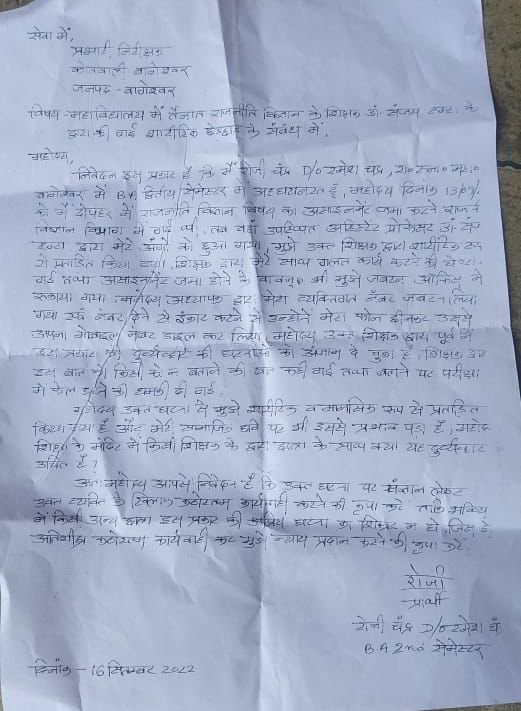 सेवा में,
प्रभारी निरीक्षक
कोतवाली बागेश्वर
जनपद - बागेश्वर
विषय - महाविद्यालय में तैनात राजनीति विज्ञान के शिक्षक डॉ. संजय टम्टा के
द्वारा की गई शारीरिक छेड़छाड़ के संबंध में,
महोदय,
निवेदन इस प्रकार है कि मैं रोजी चंद्र D/O रमेश चंद्र,
बागेश्वर में B.A द्वितीय सेमेस्टर में अध्ययनरत हूँ, महोदय दिनांक 13/09/
को मैं दोपहर में राजनीति विज्ञान विषय का असाइनमेंट जमा करने राजनीति
विज्ञान विभाग में गई थी, तब वहाँ उपस्थित असिस्टेंट प्रोफेसर डॉ. संजय
टम्टा द्वारा मेरे अंगों को छुआ गया, मुझे उक्त शिक्षक द्वारा शारीरिक रूप
से प्रताड़ित किया गया, शिक्षक द्वारा मेरे साथ गलत कार्य करने की चेष्टा की
गई तथा असाइनमेंट जमा होने के बावजूद भी मुझे जबरन ऑफिस में
रुकाया गया। महोदय अध्यापक द्वारा मेरा व्यक्तिगत नंबर जबरन लिया
गया नंबर देने से इंकार करने में उन्होंने मेरा फोन छीनकर उससे
अपना मोबाइल नंबर डाइल कर लिया। महोदय उक्त शिक्षक द्वारा पूर्व में
इस प्रकार की दुर्व्यवहार की घटनाओं को अंजाम दे चुका है, शिक्षक द्वारा
इस बात को किसी को न बताने की बात कही गई तथा बताने पर परीक्षा
में फेल करने की धमकी दी गई,
महोदय उक्त घटना से मुझे शारीरिक व मानसिक रूप से प्रताड़ित
किया गया है और मेरी सामाजिक छवि पर भी इससे प्रभाव पड़ा है, महोदय
शिक्षा के मंदिर में किसी शिक्षक के द्वारा छात्रा के साथ क्या यह दुर्व्यवहार
उचित है?
अतः महोदय आपसे निवेदन है कि उक्त घटना पर संज्ञान लेकर
उक्त व्यक्ति के खिलाफ कठोरतम कार्यवाही करने की कृपा करें ताकि भविष्य
में किसी अन्य छात्रा इस प्रकार की अप्रिय घटना का शिकार न हो,
अतिशीघ्र कठोरतम कार्यवाही कर मुझे न्याय प्रदान करने की कृपा करें.
रोजी
प्रार्थी
रोजी चंद्र D/O रमेश चंद्र
B.A 2nd सेमेस्टर
दिनांक - 16 सितम्बर 2022